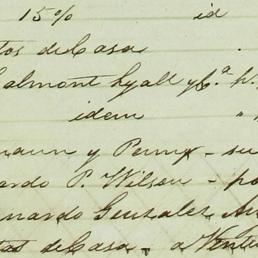 15% id
tos de Casa
Calmont Lyall y Cª
idem
mann y Penny - su
ardo P. Wilson - po
rnardo Gonzalez
tos de Casa - a Ventu